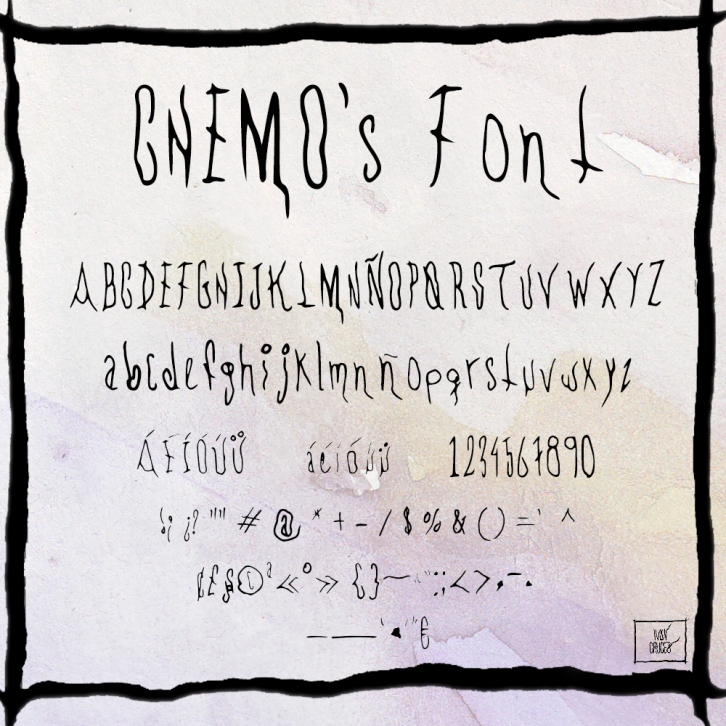 GNEMO's Font
ABCDEFGHIJKLMNÑOPQRSTUVWXYZ
abcdefghijklmnñopqrstuvwxyz
ÁÉÍÓÚÜ áéíóúü 1234567890
!¡ ¿? "" # @ * + - / $ % & ( ) = ' ^
¢£§©ª«º» {}~ ¨:;<>,-.